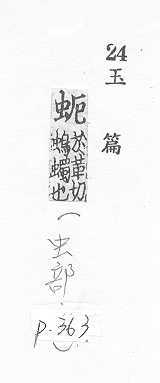 24
玉篇
蚅
於革切
蠋也
(虫部.
p.363
)